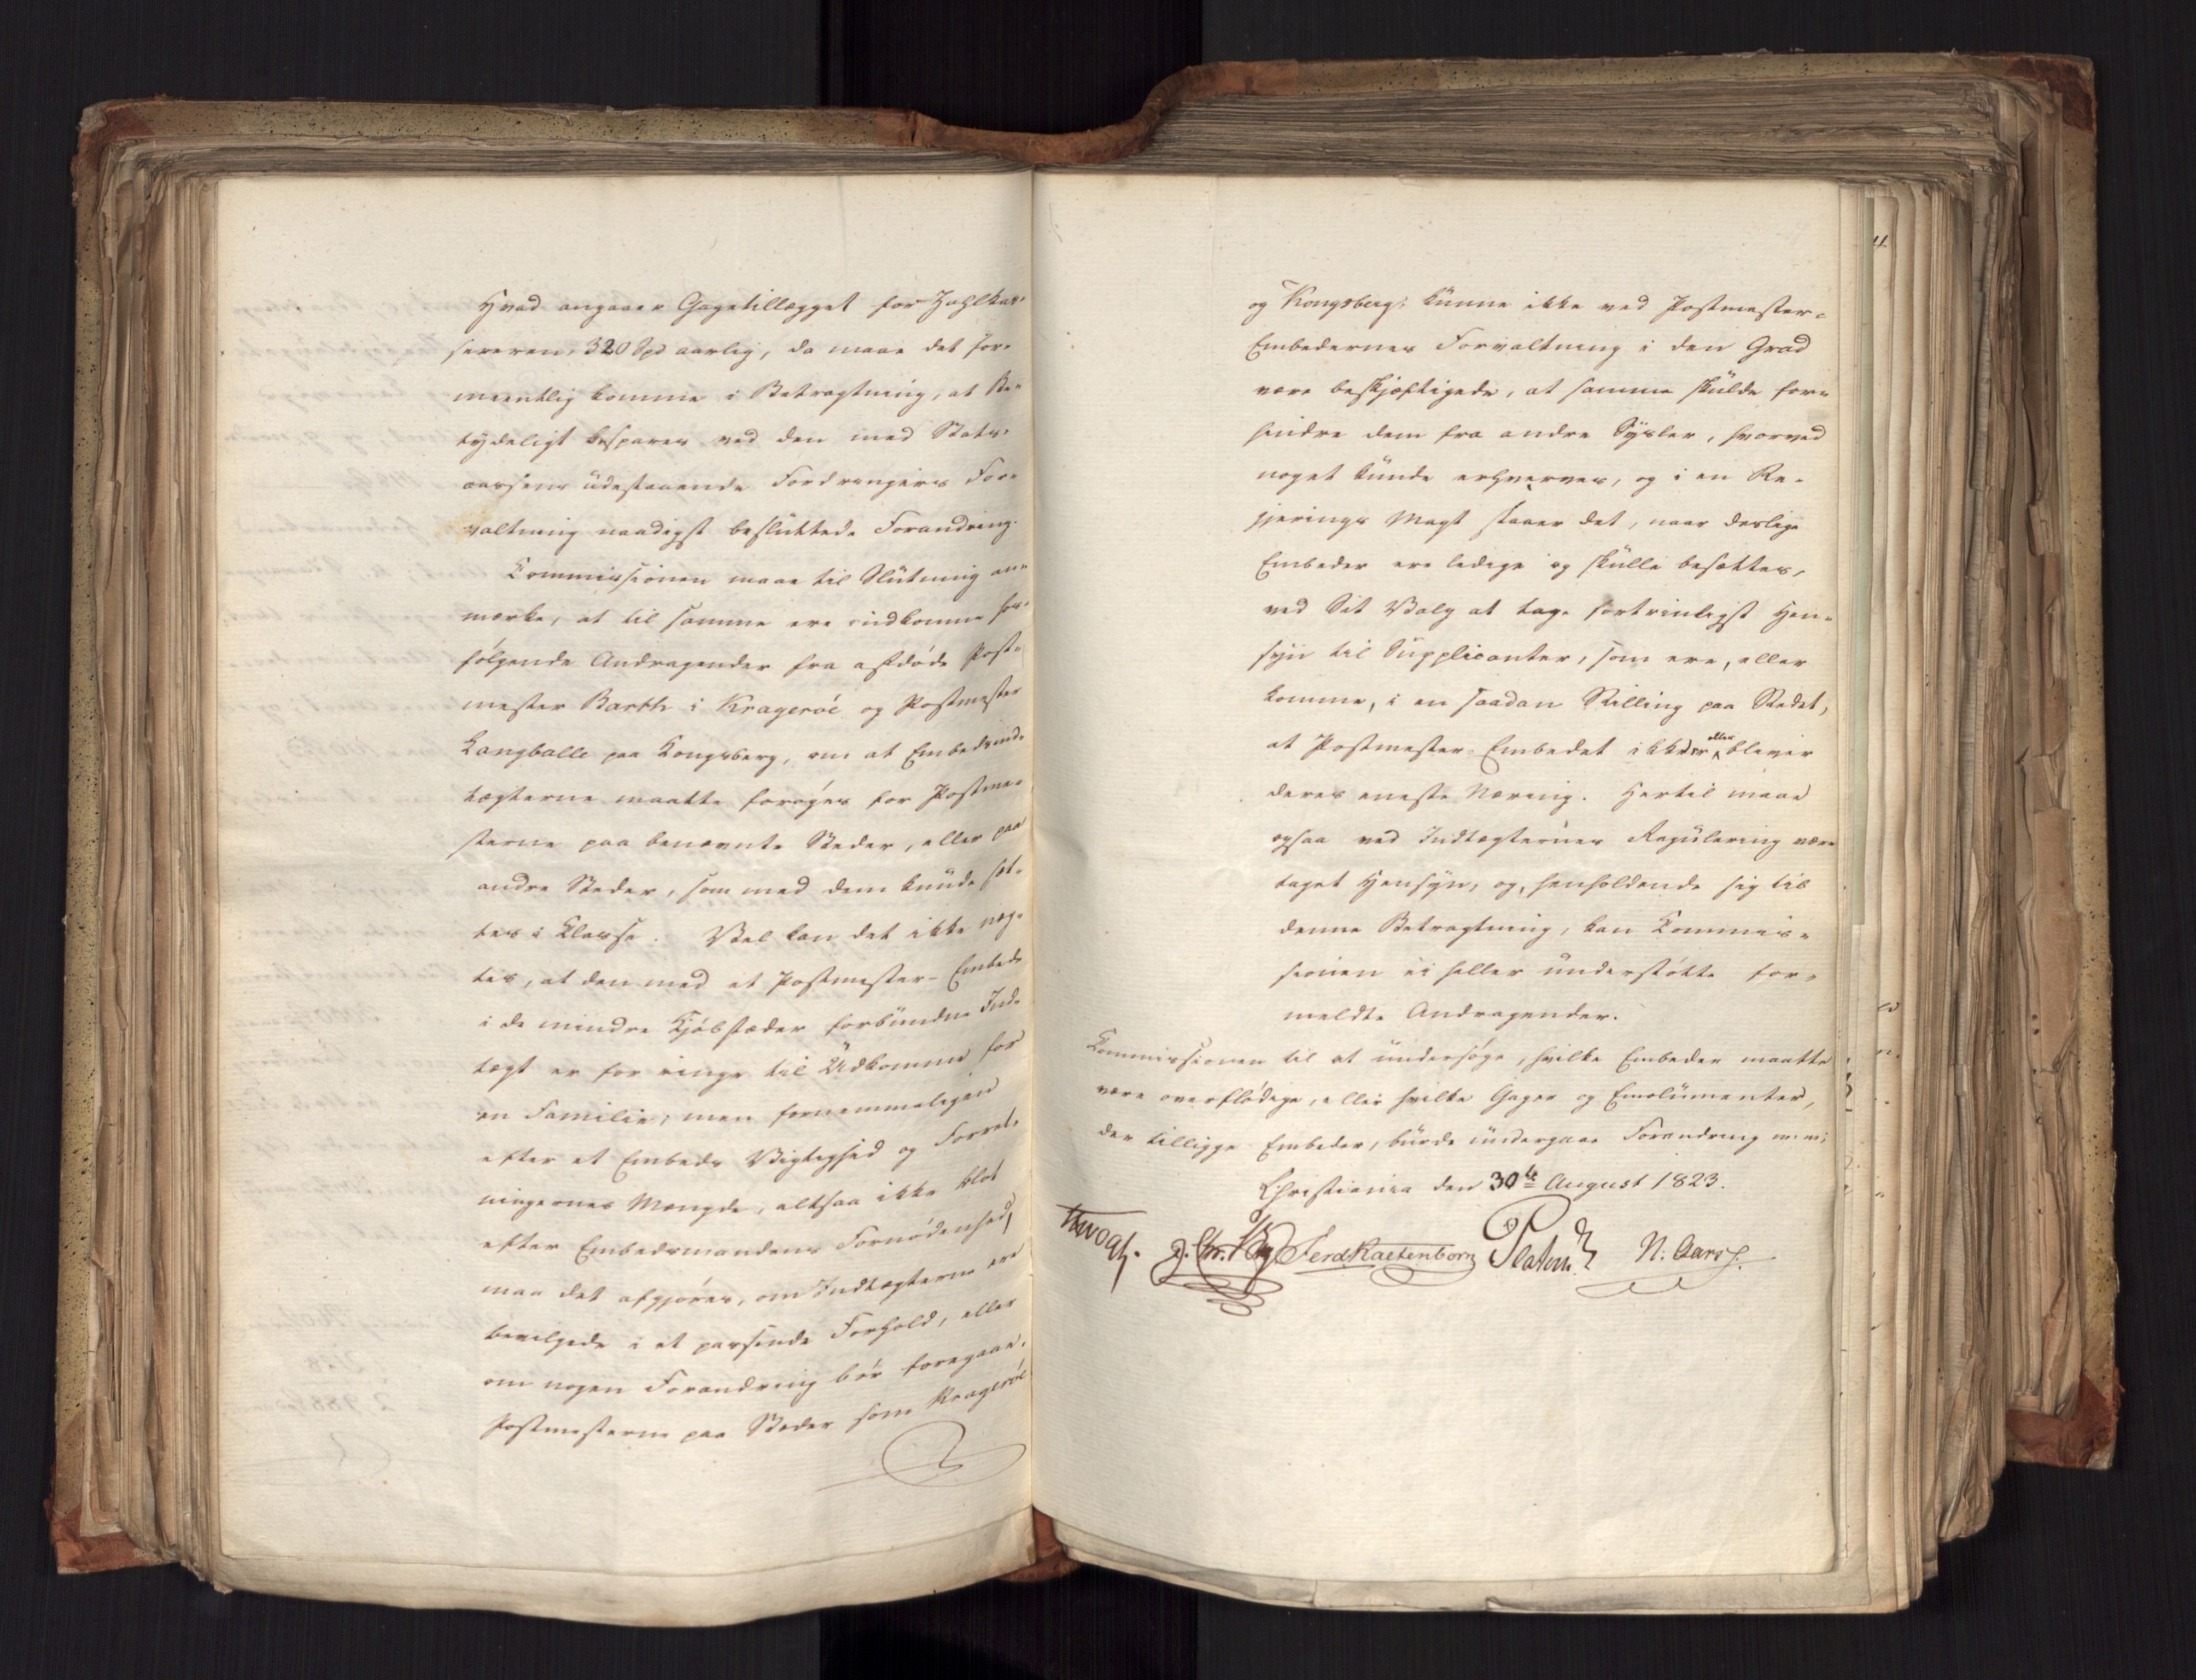 Hvad angaaer Gagetillægget for Zahlkas-
sereren, 320 Spd aarlig, da maae det for-
meentlig komme i Betragtning, at Be-
tydeligt bespares ved den med Stats-
cassens udestaaende Fordringers For-
valtning naadigst besluttede Forandring.
Commissionen maae til Slutning an-
mærke, at til samme ere indkomne for-
følgende Andragender fra afdøde Post-
mester Barth i Kragerøe og Postmester
Langballe paa Kongsberg, om at Embedsind-
tægterne maatte forøges for Postme-
sterne paa benævnte Steder, eller paa
andre Steder, som med dem kunde sæt-
tes i Classe. Vel kan det ikke næg-
tes, at den med et Postmester-Embede
i de mindre Kjøbstæder forbundne Ind-
tægt er for ringe til Udkomme for
en Familie; men fornemmeligen
efter et Embeds Vigtighed og Forret-
ningernes Mængde, altsaa ikke blot
efter Embedsmandens Fornødenhed,
maa det afgjøres, om Indtægterne ere
bevilgede i et passende Forhold, eller
om nogen Forandring bør foregaae.
Postmesterne paa Steder som Kragerøe
og Kongsberg, kunne ikke ved Postmester-
Embedernes Forvaltning i den Grad
være beskjæftigede, at samme skulde for-
hindre dem fra andre Sysler, hvorved
noget kunde erhverves, og i en Re-
gjerings Magt staaer det, naar deslige
Embeder ere ledige og skulle besættes,
ved Sit Valg at tage fortrinligst Hen-
syn til Supplicanter, som ere, eller
komme, i en saadan Stilling paa Stedet,
at Postmester-Embedet ikke er eller bliver
deres eneste Næring. Hertil maae
ogsaa ved Indtægternes Regulering være
taget Hensyn, og, henholdende sig til
denne Betragtning, kan Commis-
sionen ei heller understøtte for-
meldte Andragender.
Commissionen til at undersøge, hvilke Embeder maatte
være overflødige, eller hvilke Gager og Emolumenter,
der tilligge Embeder, burde undergaae Forandring m.m.
Christiania den 30te August 1823.
Ferd Kaetenborn Platou N: Aars